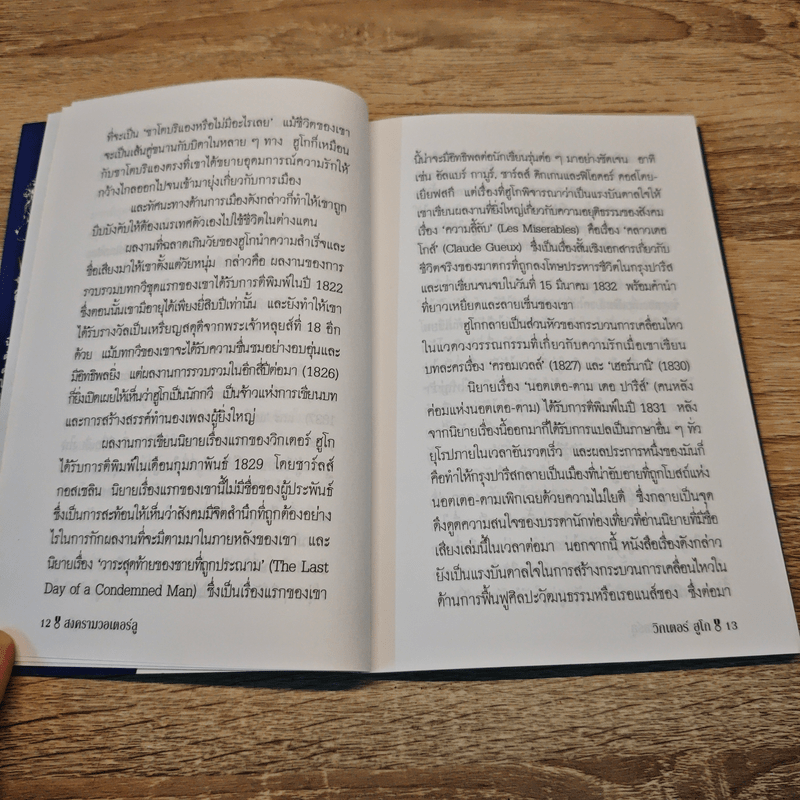 ที่จะเป็น 'ชาโตบริแองหรือไม่มีอะไรเลย' แม้ชีวิตของเขา
จะเป็นเส้นคู่ขนานกับบิดาในหลาย ๆ ทาง ฮูโกก็เหมือน
กับชาโตบริแองตรงที่เขาได้ขยายอุดมการณ์ความรักให้
กว้างไกลออกไปจนเข้ามายุ่งเกี่ยวกับการเมือง
และทัศนะทางด้านการเมืองดังกล่าวก็ทำให้เขาถูก
บีบบังคับให้ต้องเนรเทศตัวเองไปใช้ชีวิตในต่างแดน
ผลงานที่ฉลาดเกินวัยของฮูโกนำความสำเร็จและ
ชื่อเสียงมาให้เขาตั้งแต่วัยหนุ่ม กล่าวคือ ผลงานของการ
รวบรวมบทกวีชุดแรกของเขาได้รับการตีพิมพ์ในปี 1822
ซึ่งตอนนั้นเขามีอายุได้เพียงยี่สิบปีเท่านั้น และยังทำให้เขา
ได้รับรางวัลเป็นเหรียญสดุดีจากพระเจ้าหลุยส์ที่ 18 อีก
ด้วย แม้บทกวีของเขาจะได้รับความชื่นชมอย่างอบอุ่นและ
มีอิทธิพลยิ่ง แต่ผลงานการรวบรวมในอีกสี่ปีต่อมา (1826)
ก็ยิ่งเปิดเผยให้เห็นว่าฮูโกเป็นนักกวี เป็นจ้าวแห่งการเขียนบท
และการสร้างสรรค์ทำนองเพลงผู้ยิ่งใหญ่
ผลงานการเขียนนิยายเรื่องแรกของวิกเตอร์ ฮูโก
ได้รับการตีพิมพ์ในเดือนกุมภาพันธ์ 1829 โดยชาร์ลส์
กอสเซลิน นิยายเรื่องแรกของเขานี้ไม่มีชื่อของผู้ประพันธ์
ซึ่งเป็นการสะท้อนให้เห็นว่าสังคมมีจิตสำนึกที่ถูกต้องอย่าง
ไรในการกักผลงานที่จะมีตามมาในภายหลังของเขา และ
นิยายเรื่อง 'วาระสุดท้ายของชายที่ถูกประณาม' (The Last
Day of a Condemned Man) ซึ่งเป็นเรื่องแรกของเขา
12 สงครามวอเตอร์ลู
นี้น่าจะมีอิทธิพลต่อนักเขียนรุ่นต่อ ๆ มาอย่างชัดเจน อาทิ
เช่น อัลแบร์ กามูร์, ชาร์ลส์ ดิกเกนและฟิโอดอร์ ดอสโตย-
เยียฟสกี แต่เรื่องที่ฮูโกพิจารณาว่าเป็นแรงบันดาลใจให้
เขาเขียนผลงานที่ยิ่งใหญ่เกี่ยวกับความอยุติธรรมของสังคม
เรื่อง 'ความลี้ลับ' (Les Miserables) คือเรื่อง 'คลาวเดอ
โกส์' (Claude Gueux) ซึ่งเป็นเรื่องสั้นเชิงเอกสารเกี่ยวกับ
ชีวิตจริงของฆาตกรที่ถูกลงโทษประหารชีวิตในกรุงปารีส
และเขาเขียนจนจบในวันที่ 15 มีนาคม 1832 พร้อมคำนำ
ที่ยาวเหยียดและลายเซ็นของเขา
ฮูโกกลายเป็นส่วนหัวของกระบวนการเคลื่อนไหว
ในแวดวงวรรณกรรมที่เกี่ยวกับความรักเมื่อเขาเขียน
บทละครเรื่อง 'ครอมเวลล์' (1827) และ 'เฮอร์นานี' (1830)
นิยายเรื่อง 'นอตเตอ-ดาม เดอ ปารีส์' (คนหลัง
ค่อมแห่งนอตเตอ-ดาม) ได้รับการตีพิมพ์ในปี 1831 หลัง
จากนิยายเรื่องนี้ออกมาก็ได้รับการแปลเป็นภาษาอื่น ๆ ทั่ว
ยุโรปภายในเวลาอันรวดเร็ว และผลประการหนึ่งของมันก็
คือทำให้กรุงปารีสกลายเป็นเมืองที่น่าอับอายที่ถูกโบสถ์แห่ง
นอตเตอ-ดามเพิกเฉยด้วยความไม่ไยดี ซึ่งกลายเป็นจุด
ดึงดูดความสนใจของบรรดานักท่องเที่ยวที่อ่านนิยายที่มีชื่อ
เสียงเล่มนี้ในเวลาต่อมา นอกจากนี้ หนังสือเรื่องดังกล่าว
ยังเป็นแรงบันดาลใจในการสร้างกระบวนการเคลื่อนไหวใน
ด้านการฟื้นฟูศิลปะวัฒนธรรมหรือเรอแนส์ซอง ซึ่งต่อมา
วิกเตอร์ ฮูโก 13